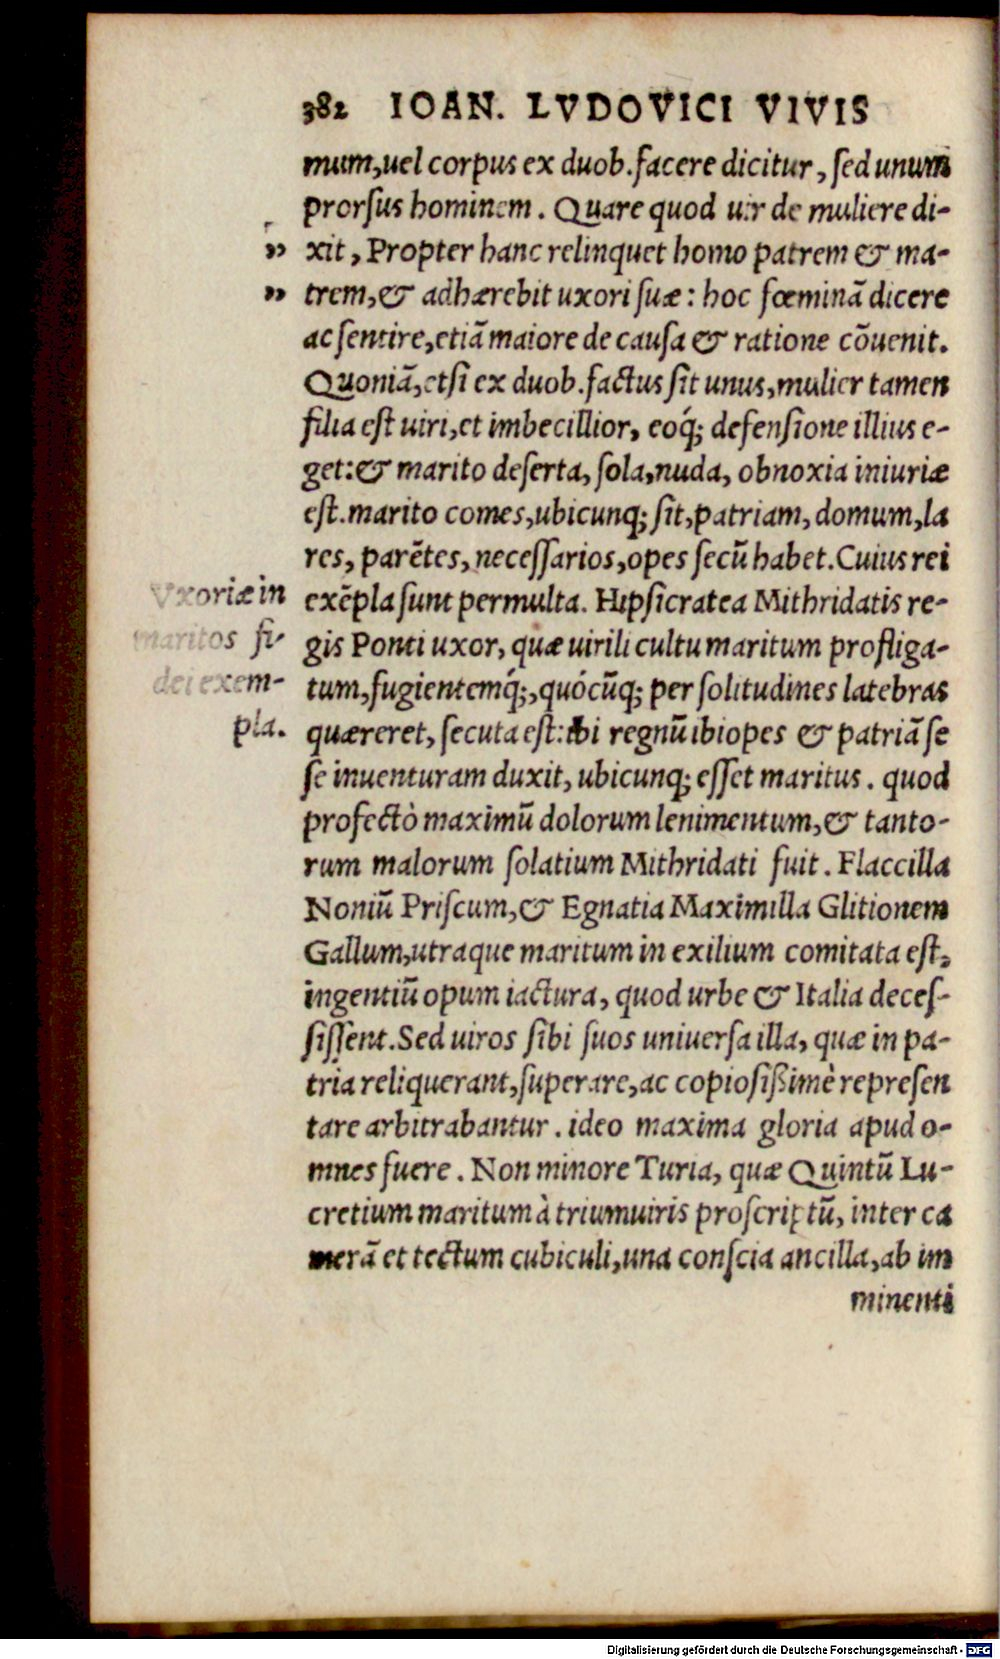 382 IOAN. LVDOVICI VIVIS
mum,uel corpus ex duob.facere dicitur, sed unum
prorsus hominem. Quare quod uir de muliere di-
„ xit, Propter hanc relinquet homo patrem & ma-
„ trem,& adhærebit uxori suæ: hoc fœminā dicere
ac sentire,etiā maiore de causa & ratione cōuenit.
Quoniā,etsi ex duob.factus sit unus,mulier tamen
filia est uiri,et imbecillior, eoq́; defensione illius e-
get:& marito deserta, sola,nuda, obnoxia iniuriæ
est.marito comes,ubicunq; sit,patriam, domum,la
res, parētes, necessarios,opes secū habet.Cuius rei
Vxoriæ in
maritos fi-
dei exem-
pla.
exēpla sunt permulta. Hipsicratea Mithridatis re-
gis Ponti uxor, quæ uirili cultu maritum profliga-
tum,fugientemq́;,quócūq; per solitudines latebras
quæreret, secuta est:ibi regnū ibi opes & patriā se
se inuenturam duxit, ubicunq; esset maritus. quod
profectò maximū dolorum lenimentum,& tanto-
rum malorum solatium Mithridati fuit. Flaccilla
Noniū Priscum,& Egnatia Maximilla Glitionem
Gallum,utraque maritum in exilium comitata est,
ingentiū opum iactura, quod urbe & Italia deces-
sissent.Sed uiros sibi suos uniuersa illa, quæ in pa-
tria reliquerant,superare,ac copiosißimè represen
tare arbitrabantur. ideo maxima gloria apud o-
mnes fuere. Non minore Turia, quæ Quintū Lu-
cretium maritum à triumuiris proscriptū, inter ca
merā et tectum cubiculi,una conscia ancilla,ab im
minenti
Digitalisierung gefördert durch die Deutsche Forschungsgemeinschaft - DFG